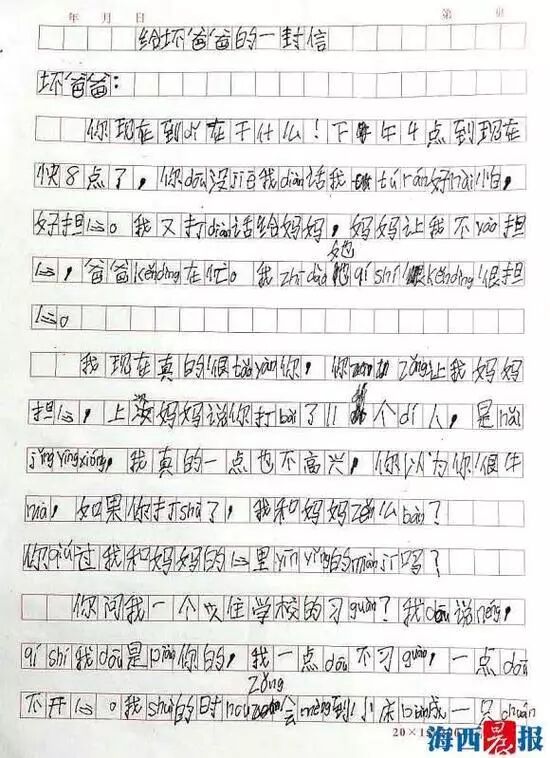 年 月 日 第 页
给坏爸爸的一封信
坏爸爸：
你现在到dǐ在干什么！下午4点到现在
快8点了，你dōu没jiē我diàn话我tú rán好hài怕，
好担心。我又打diàn话给妈妈，妈妈让我不yào担
心，爸爸kěndìng在忙。我zhī dào她qí shí kěndìng很担
心。
我现在真的很tǎo yàn你，你zǒng让我妈妈
担心，上次妈妈说你打bài了11个dí人，是hǎi
jūn yīng xióng，我真的一点也不高兴，你以为你很牛
ma，如果你打shū了，我和妈妈zěn么bàn？
你guò过我和妈妈的心里yīn yǐng的miàn jī吗？
你问我一个人住学校的习guàn？我dōu说néng，
qí shí我dōu是piàn你的，我一点dōu不习guàn，一点dōu
不开心。我shuì的时hou zǒng会mèng到小床biàn成一只chuán
20×15=300
海西晨报